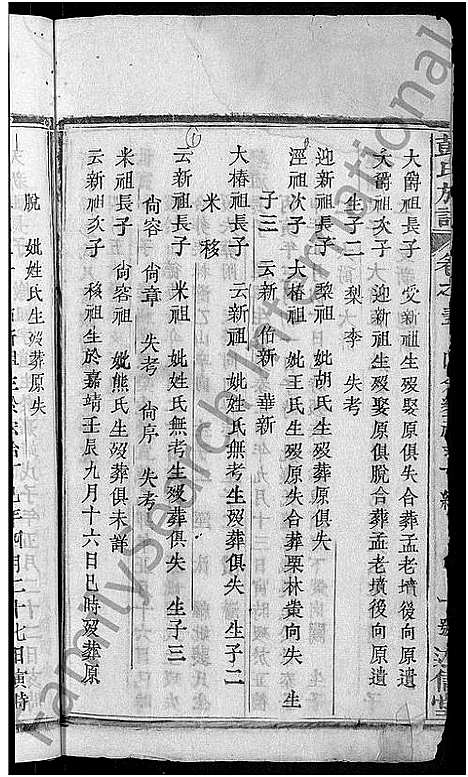 黃氏族譜
大爵祖長子 受新祖生歿娶原俱失合葬孟老墳後向原遺
大爵祖次子 迎新祖生歿娶原俱脫合葬孟老墳後向原遺
生子二 梨 李 失考
迎新祖長子 黎祖 妣胡氏生歿葬俱失
涇祖次子 大椿祖 妣王氏生歿原失合葬栗林賁向失 生
子三 云新 伯新 華新
大椿祖長子 云新祖 妣姓氏無考生歿葬俱失 生子二
米 移
云新祖長子 米祖 妣姓氏無考生歿葬俱失 生子三
尙容 尙章 失考 尙序 失考
米祖長子 尙容祖 妣熊氏生歿葬俱未詳
云新祖次子 移祖生於嘉靖壬辰九月十六日巳時歿葬原
脫 妣姓氏生歿葬原失
FamilySearch International